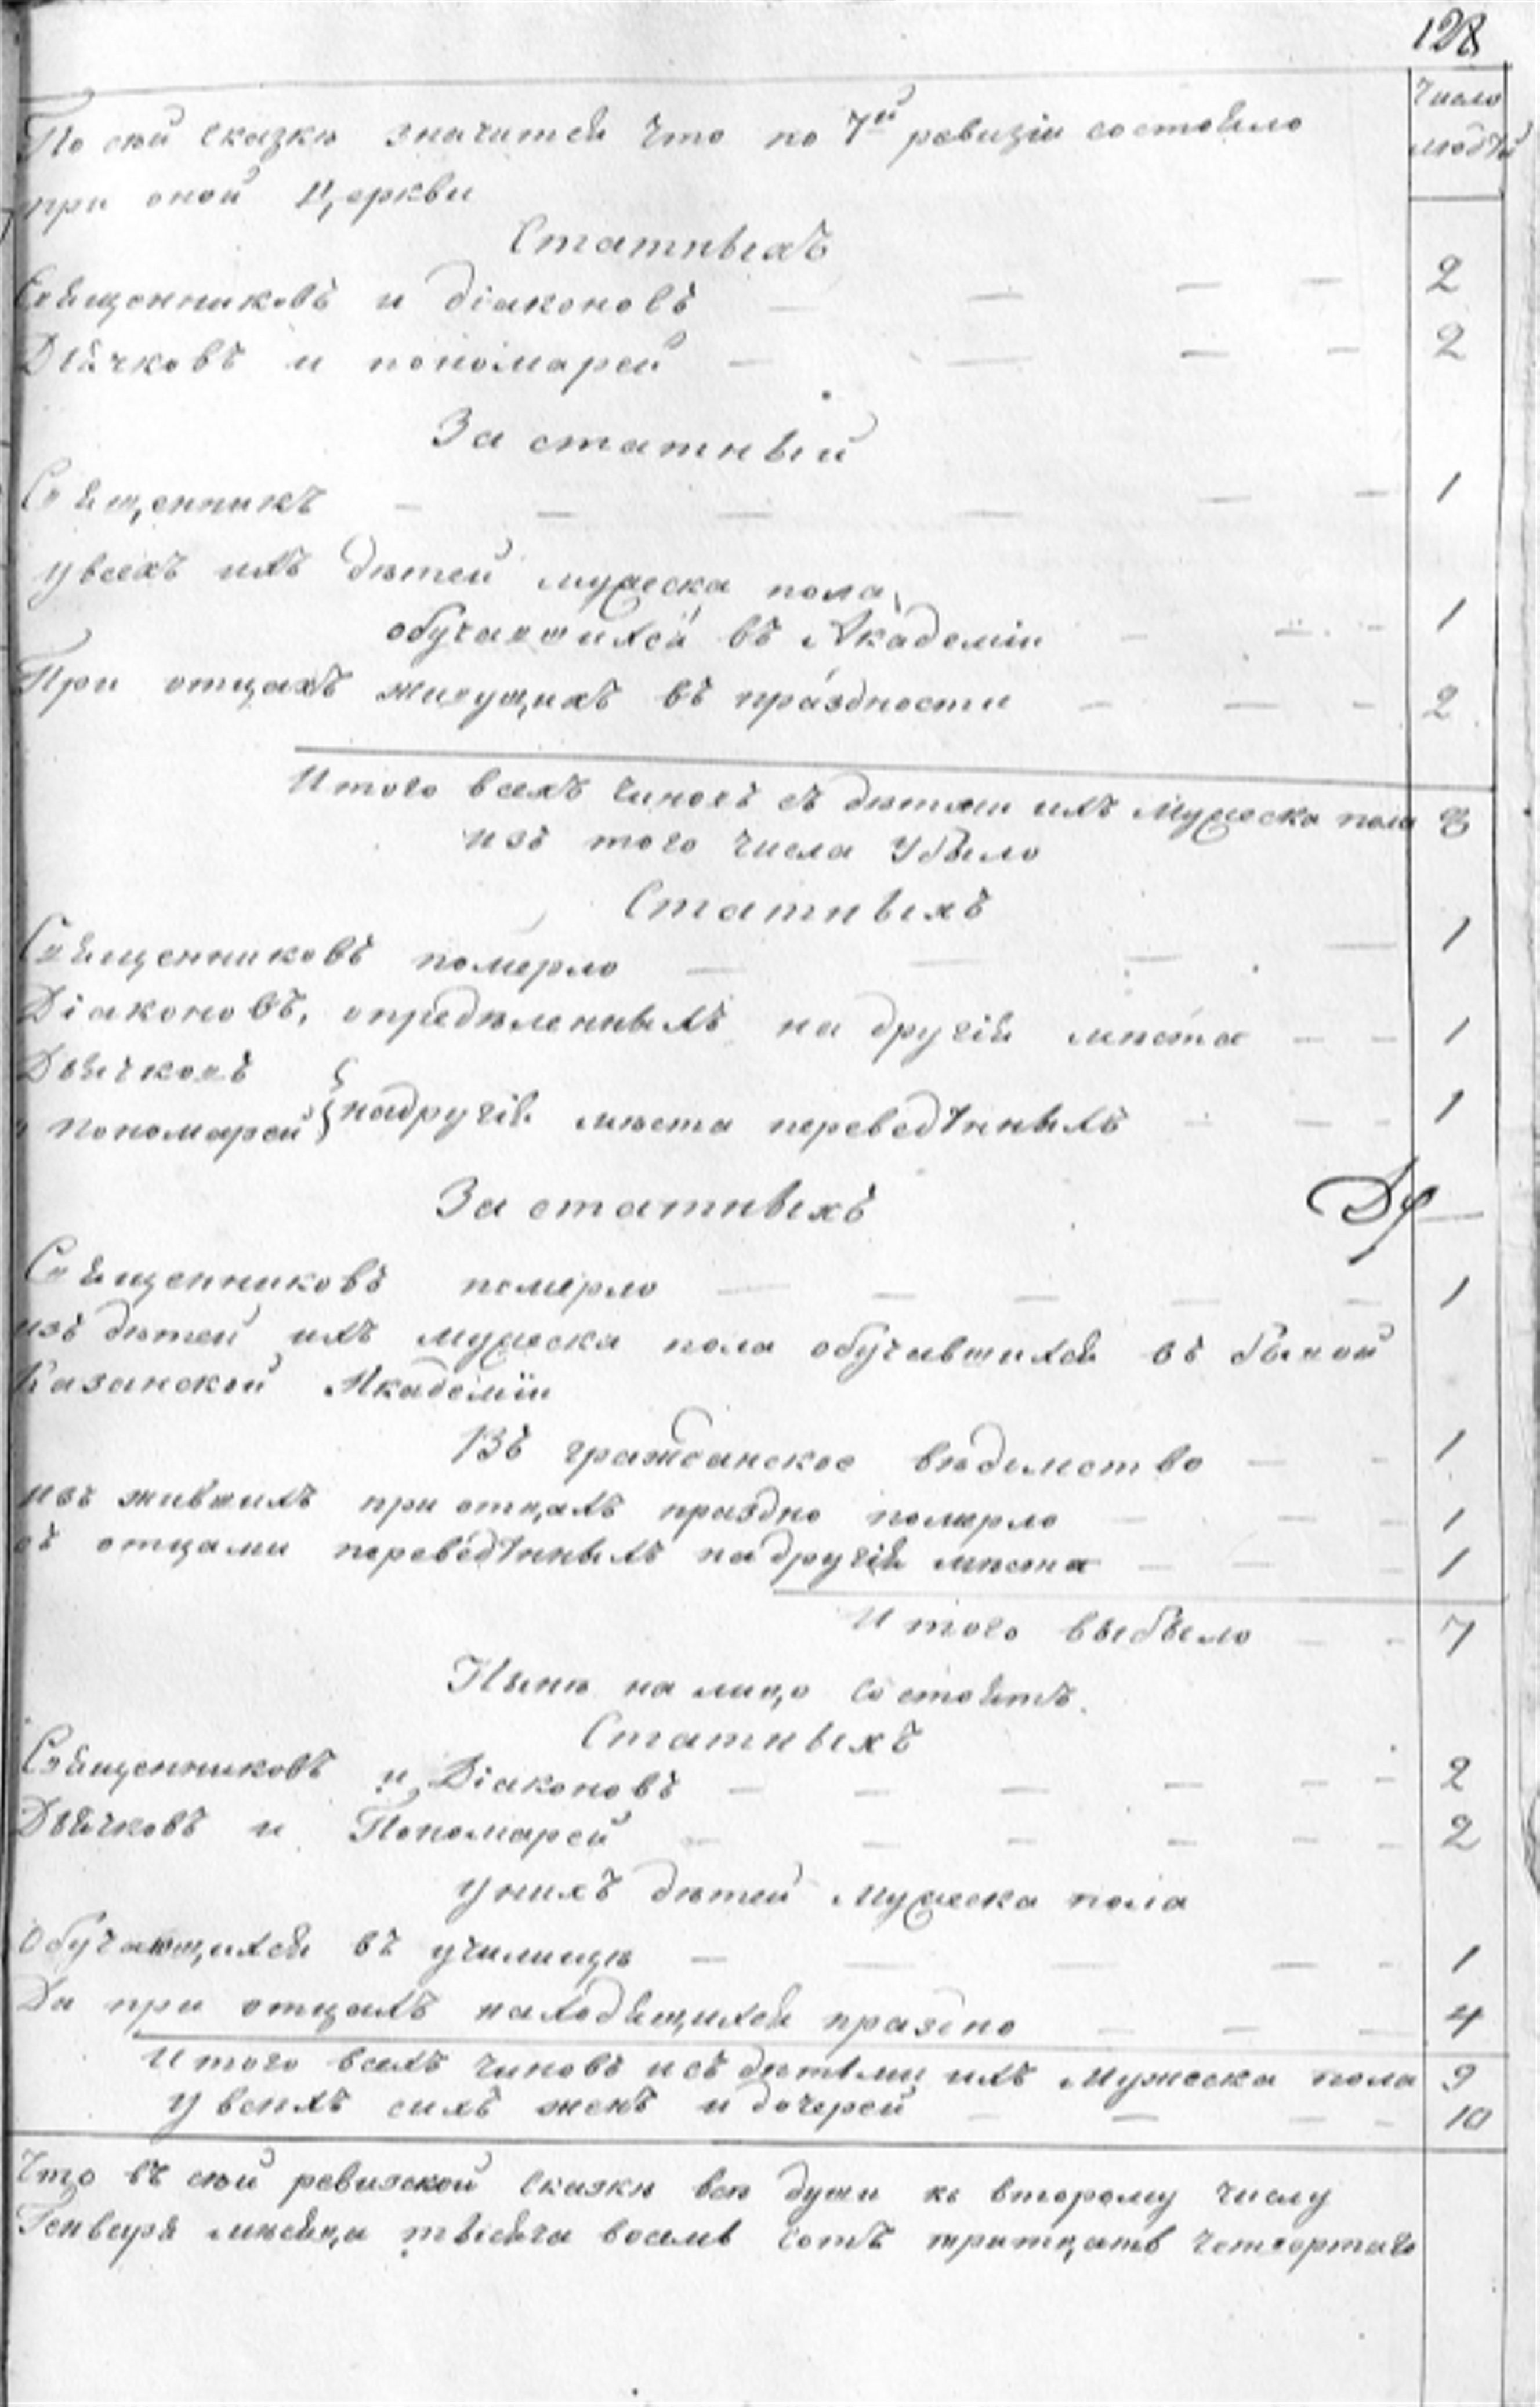 128
Число
людѣй
По сѣй сказкѣ значится что по 7й ревизіи состояло
при оной Церкви
Статныхъ
Священниковъ и діаконовъ — — — — 2
Дьячковъ и пономарей — — — — 2
За статный
Священникъ — — — — — — 1
у всехъ ихъ дѣтей мужеска пола
обучавшихся въ Академіи — — — 1
При отцахъ живущихъ въ праздности — — — 2
Итого всехъ чиновъ съ дѣтми ихъ мужеска пола 8
изъ того числа убыло
Статныхъ
Священниковъ померло — — — — 1
Діаконовъ, опредѣленныхъ на другія мѣста — — 1
Дьячковъ
и пономарей } на другія мѣста переведѣнныхъ — — — 1
За статныхъ
Священниковъ померло — — — — — 1
изъ дѣтей ихъ мужеска пола обучавшихся въ бывой
Казанской Академіи
Въ гражданское вѣдомство — — 1
изъ живших при отцахъ праздно померло — — — 1
съ отцами переведѣнныхъ на другія мѣста — — — 1
Итого выбыло — — 7
Нынѣ на лицо состоитъ.
Статныхъ
Священниковъ и Діаконовъ — — — — — — 2
Дьячковъ и Пономарей — — — — — — 2
у нихъ дѣтей мужеска пола
Обучающихся въ училищѣ — — — — — 1
Да при отцахъ находящихся праздно — — — 4
Итого всехъ чиновъ и съ дѣтьми ихъ мужеска пола 9
у всѣхъ сихъ женъ и дочерей — — — — 10
Что въ сѣй ревизской сказкѣ всѣ души ко второму числу
Генваря мѣсяца тысяча восемь сотъ тритцать четвертаго